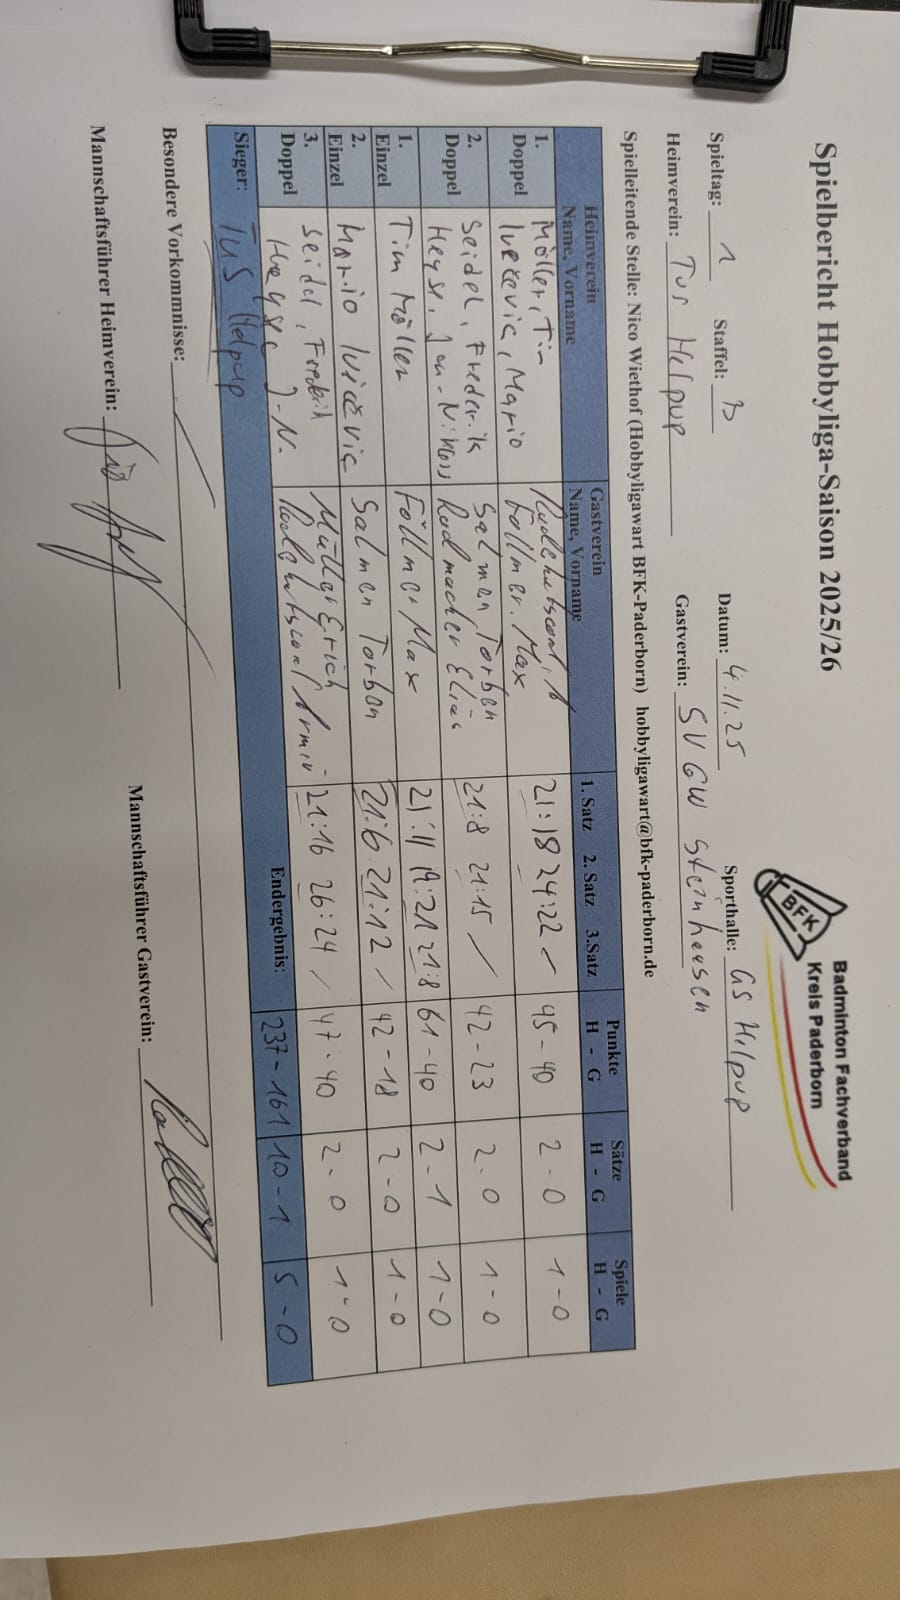 Spielbericht Hobbyliga-Saison 2025/26
Badminton Fachverband
Kreis Paderborn
BFK
Spieltag: 1 Staffel: B Datum: 4.11.25 Sporthalle: GS Helpup
Heimverein: TuS Helpup Gastverein: SV GW Steinhausen
Spielleitende Stelle: Nico Wiethof (Hobbyligawart BFK-Paderborn) hobbyligawart@bfk-paderborn.de
Heimverein Name, Vorname Gastverein Name, Vorname 1. Satz 2. Satz 3.Satz Punkte H - G Sätze H - G Spiele H - G
1. Doppel Möller, Tim 21:18 24:22 / 45 - 40 2 - 0 1 - 0
Ivicevic, Mario Follmer, Max
2. Doppel Seidel, Frederik Salmen, Torben 21:8 21:15 / 42 - 23 2 - 0 1 - 0
Heyse, Jan-Niklas Radmacher Elias
1. Einzel Tim Möller Föllmer Max 21:11 19:21 21:8 61 - 40 2 - 1 1 - 0
2. Einzel Mario Ivičević Salmen Torben 21:6 21:12 / 42 - 18 2 - 0 1 - 0
3. Doppel Seidel, Frederik Müller Erich 21:16 26:24 / 47 - 40 2 - 0 1 - 0
Heyse J-N. Armin
Endergebnis: 237 - 161 10 - 1 5 - 0
Sieger: TuS Helpup
Besondere Vorkommnisse:
Mannschaftsführer Heimverein: Mannschaftsführer Gastverein: